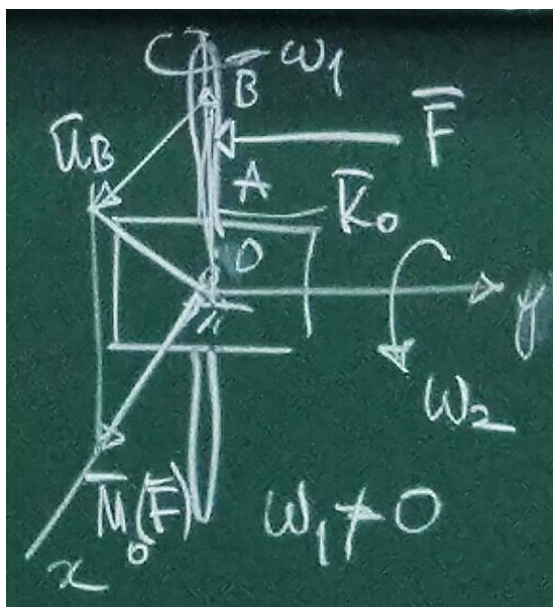 ω₁
B
F̅
u̅_B
A
K̅₀
O
y
ω₂
M̅₀(F̅)
ω₁ ≠ 0
x